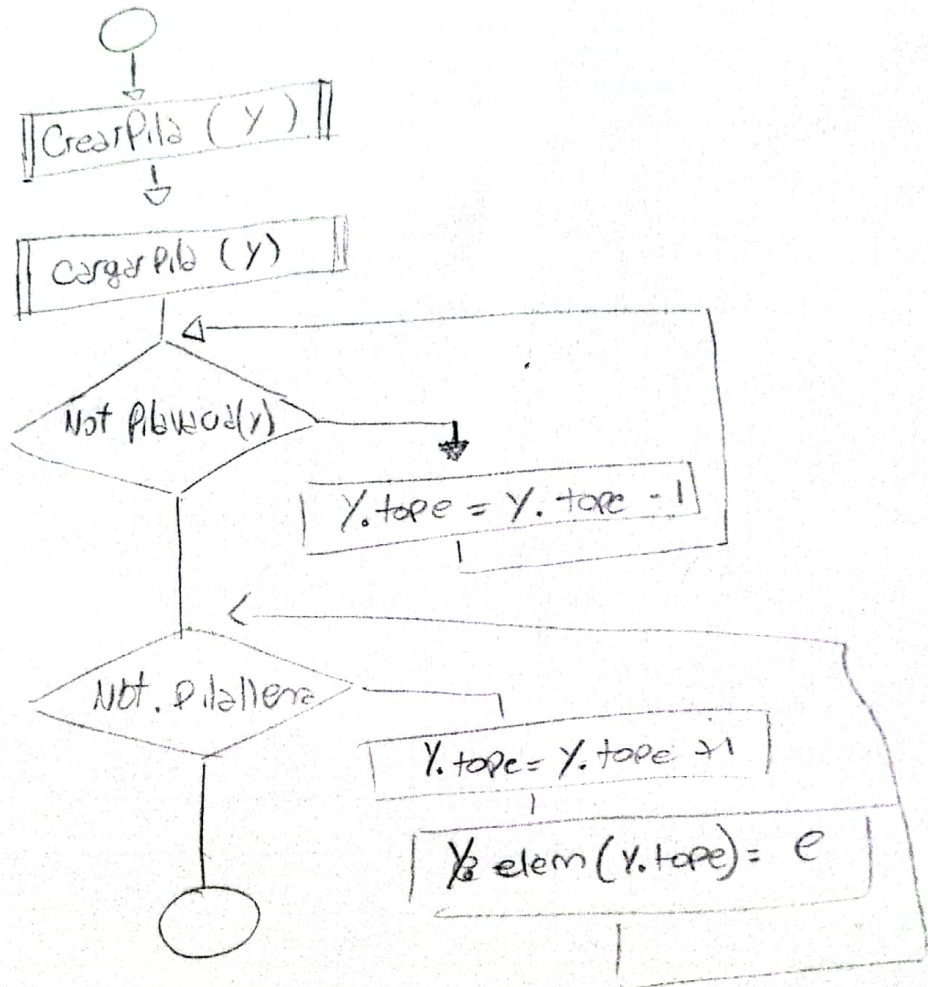 CrearPila ( Y )
CargarPila (Y)
Not Pilavacia(y)
Y.tope = Y.tope - 1
Not. Pilallena
Y.tope = Y.tope +1
Y. elem (Y.tope) = e